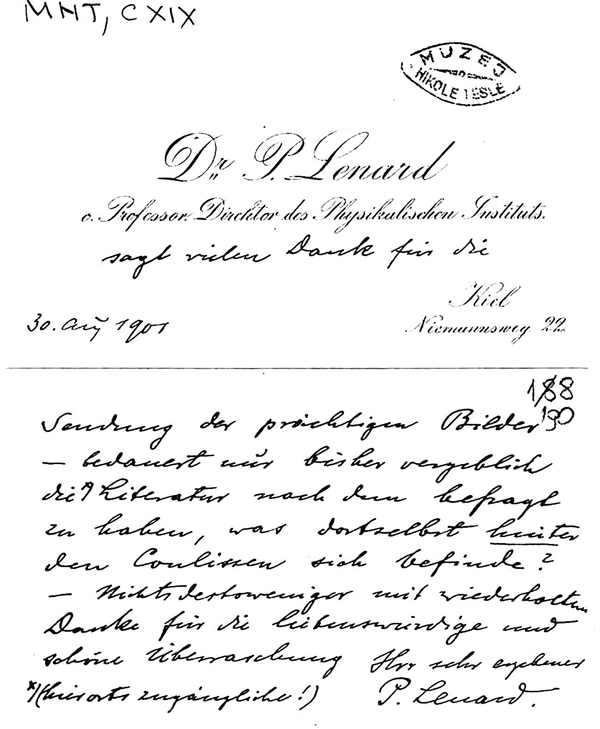 MNT, CXIX
MUZEJ
NIKOLE TESLE
Dr. P. Lenard
o. Professor. Direktor des Physikalischen Instituts.
sagt vielen Dank für die
Kiel
30. Aug 1901
Niemannsweg 22.
188
190
Sendung der prächtigen Bilder
— bedauert nur bisher vergeblich
die *) Literatur nach dem befragt
zu haben, was dortselbst hinter
den Coulissen sich befinde?
— Nichtsdestoweniger mit wiederholtem
Danke für die liebenswürdige und
schöne Überraschung Ihr sehr ergebener
*) (hierorts zugängliche!) P. Lenard.